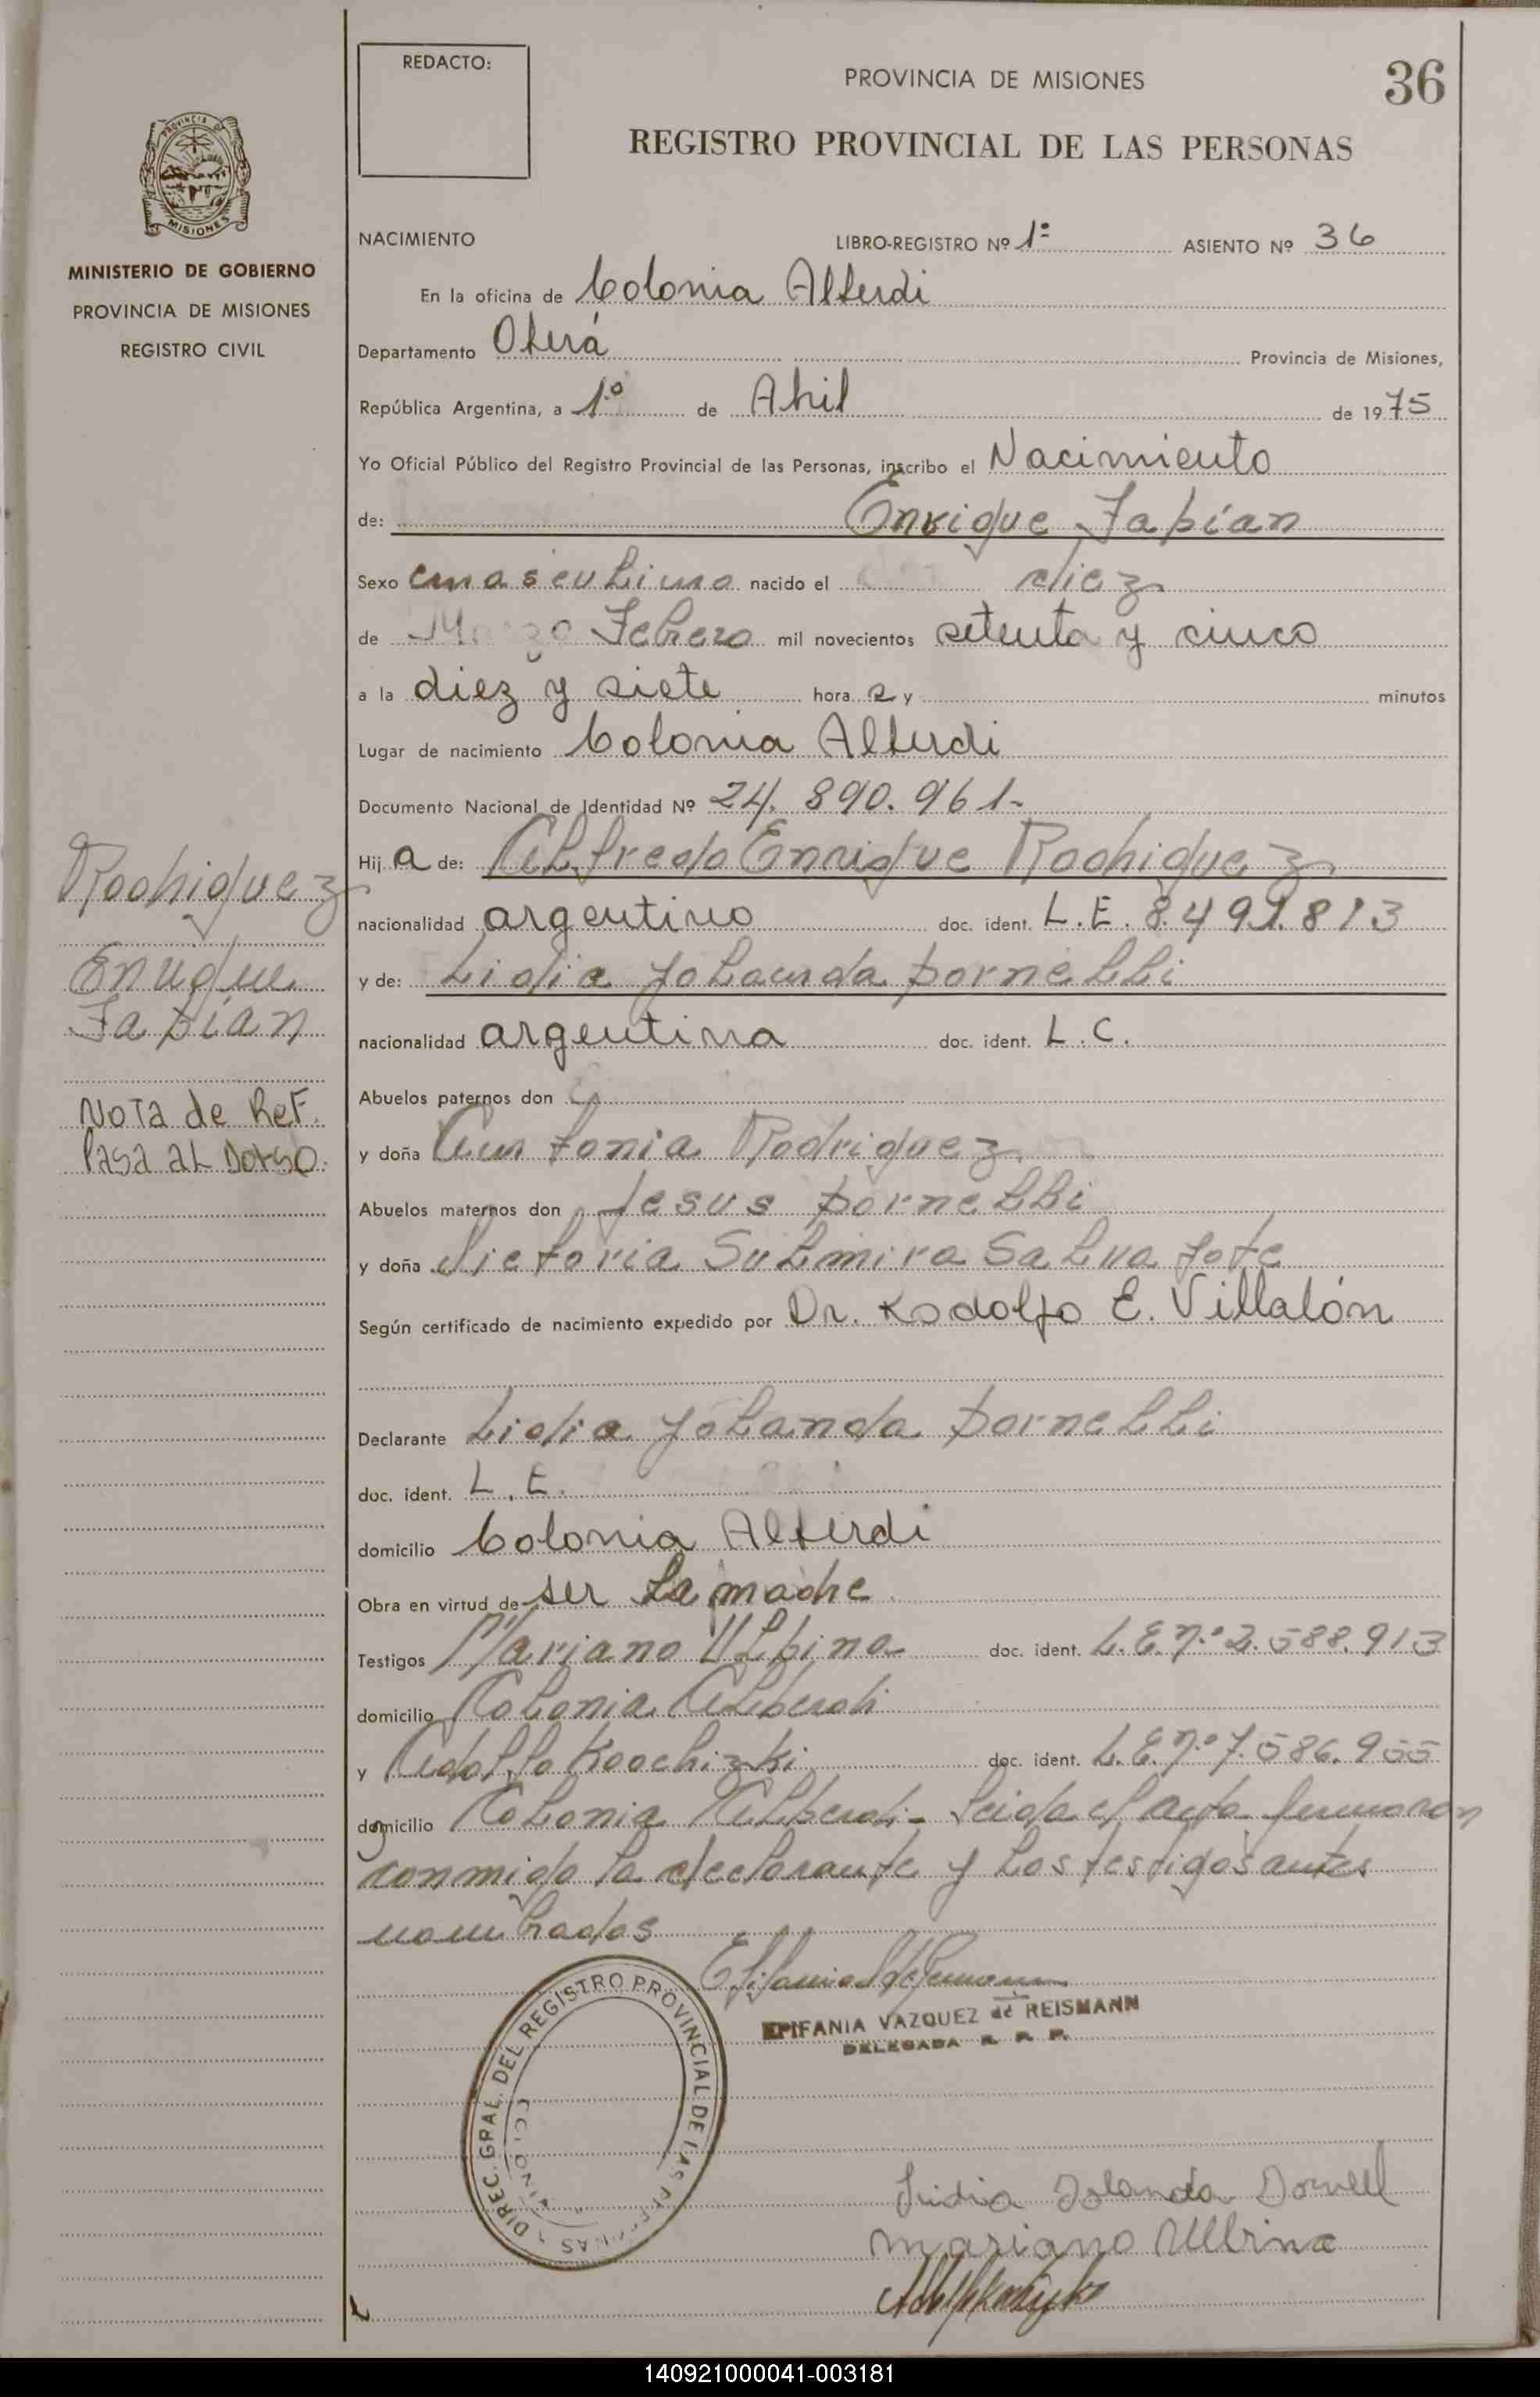 REDACTO:
PROVINCIA DE MISIONES
36
REGISTRO PROVINCIAL DE LAS PERSONAS
PROVINCIA DE
MISIONES
MINISTERIO DE GOBIERNO
PROVINCIA DE MISIONES
REGISTRO CIVIL
NACIMIENTO LIBRO-REGISTRO Nº 1º ASIENTO Nº 36
En la oficina de Colonia Alberdi
Departamento Oberá Provincia de Misiones,
República Argentina, a 1º de Abril de 1975
Yo Oficial Público del Registro Provincial de las Personas, inscribo el Nacimiento
de: Enrique Fabián
Sexo masculino nacido el diez
de Febrero mil novecientos setenta y cinco
a la diez y siete hora s y minutos
Lugar de nacimiento Colonia Alberdi
Documento Nacional de Identidad Nº 24.890.961-
Hij a de: Alfredo Enrique Rodriguez
nacionalidad argentino doc. ident. L.E. 8.491.813
y de: Lidia Yolanda Dornelli
nacionalidad argentina doc. ident. L.C.
Abuelos paternos don
y doña Antonia Rodriguez
Abuelos maternos don Jesus Dornelli
y doña Victoria Sulmira
Según certificado de nacimiento expedido por Dr. Rodolfo E. Villalón
Declarante Lidia Yolanda Dornelli
doc. ident. L.E.
domicilio Colonia Alberdi
Obra en virtud de ser la madre
Testigos Mariano Ulbina doc. ident. L.E.nº 2.588.913
domicilio Colonia Alberdi
y Adolfo Koochizki doc. ident. L.E.nº 7.586.955
domicilio Colonia Alberdi- Leida el acta firmaron
conmigo la declarante y los testigos antes
nombrados
EPIFANIA VAZQUEZ de REISMANN
DELEGADA R. P. P.
DIREC. GRAL. DEL REGISTRO PROVINCIAL DE LAS PERSONAS
Lidia Yolanda Dornell
Mariano Ulbrina
Rodriguez
Enrique
Fabián
NOTA de Ref.
Pasa al Dorso.
140921000041-003181